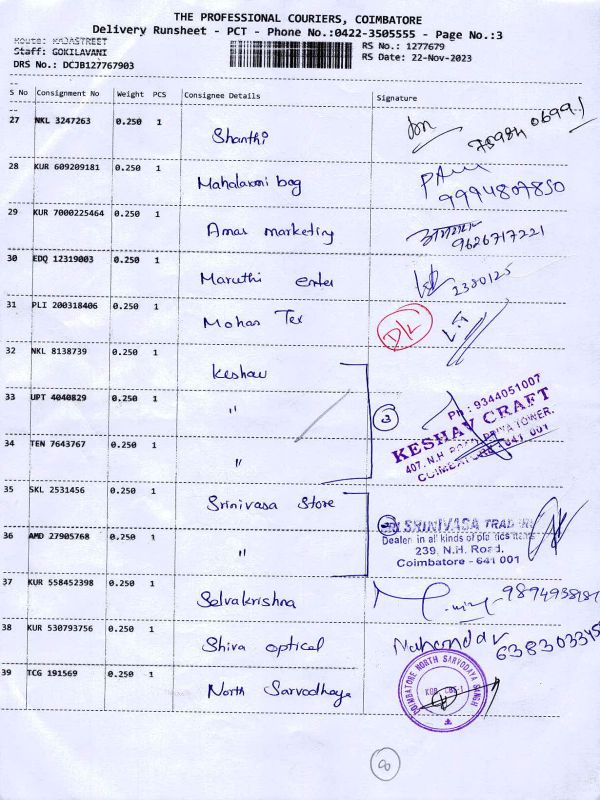 THE PROFESSIONAL COURIERS, COIMBATORE
Delivery Runsheet - PCT - Phone No.:0422-3505555 - Page No.:3
Route: RAJASTREET
Staff: GOKILAVANI
DRS No.: DCJB127767903
RS No.: 1277679
RS Date: 22-Nov-2023
S No Consignment No Weight PCS Consignee Details Signature
27 NKL 3247263 0.250 1 Shanthi
28 KUR 609209181 0.250 1 Mahalaxmi bag 9994807850
29 KUR 7000225464 0.250 1 Amar marketing 9626717221
30 EDQ 12319003 0.250 1 Maruthi enter 2380125
31 PLI 200318406 0.250 1 Mohan Tex D/L
32 NKL 8138739 0.250 1 Keshav
33 UPT 4040829 0.250 1 "
3
Ph : 9344051007
KESHAV CRAFT
407, N.H. TOWER,
COIMBATORE - 641 001
34 TEN 7643767 0.250 1 "
35 SKL 2531456 0.250 1 Srinivasa Store
SRINIVASA
Dealer in all kinds of
239, N.H. Road,
Coimbatore - 641 001
36 AMD 27905768 0.250 1 "
37 KUR 558452398 0.250 1 Selvakrishna
38 KUR 530793756 0.250 1 Shiva optical
39 TCG 191569 0.250 1 North Sarvodhaya
COIMBATORE NORTH SARVODAYA SANGH